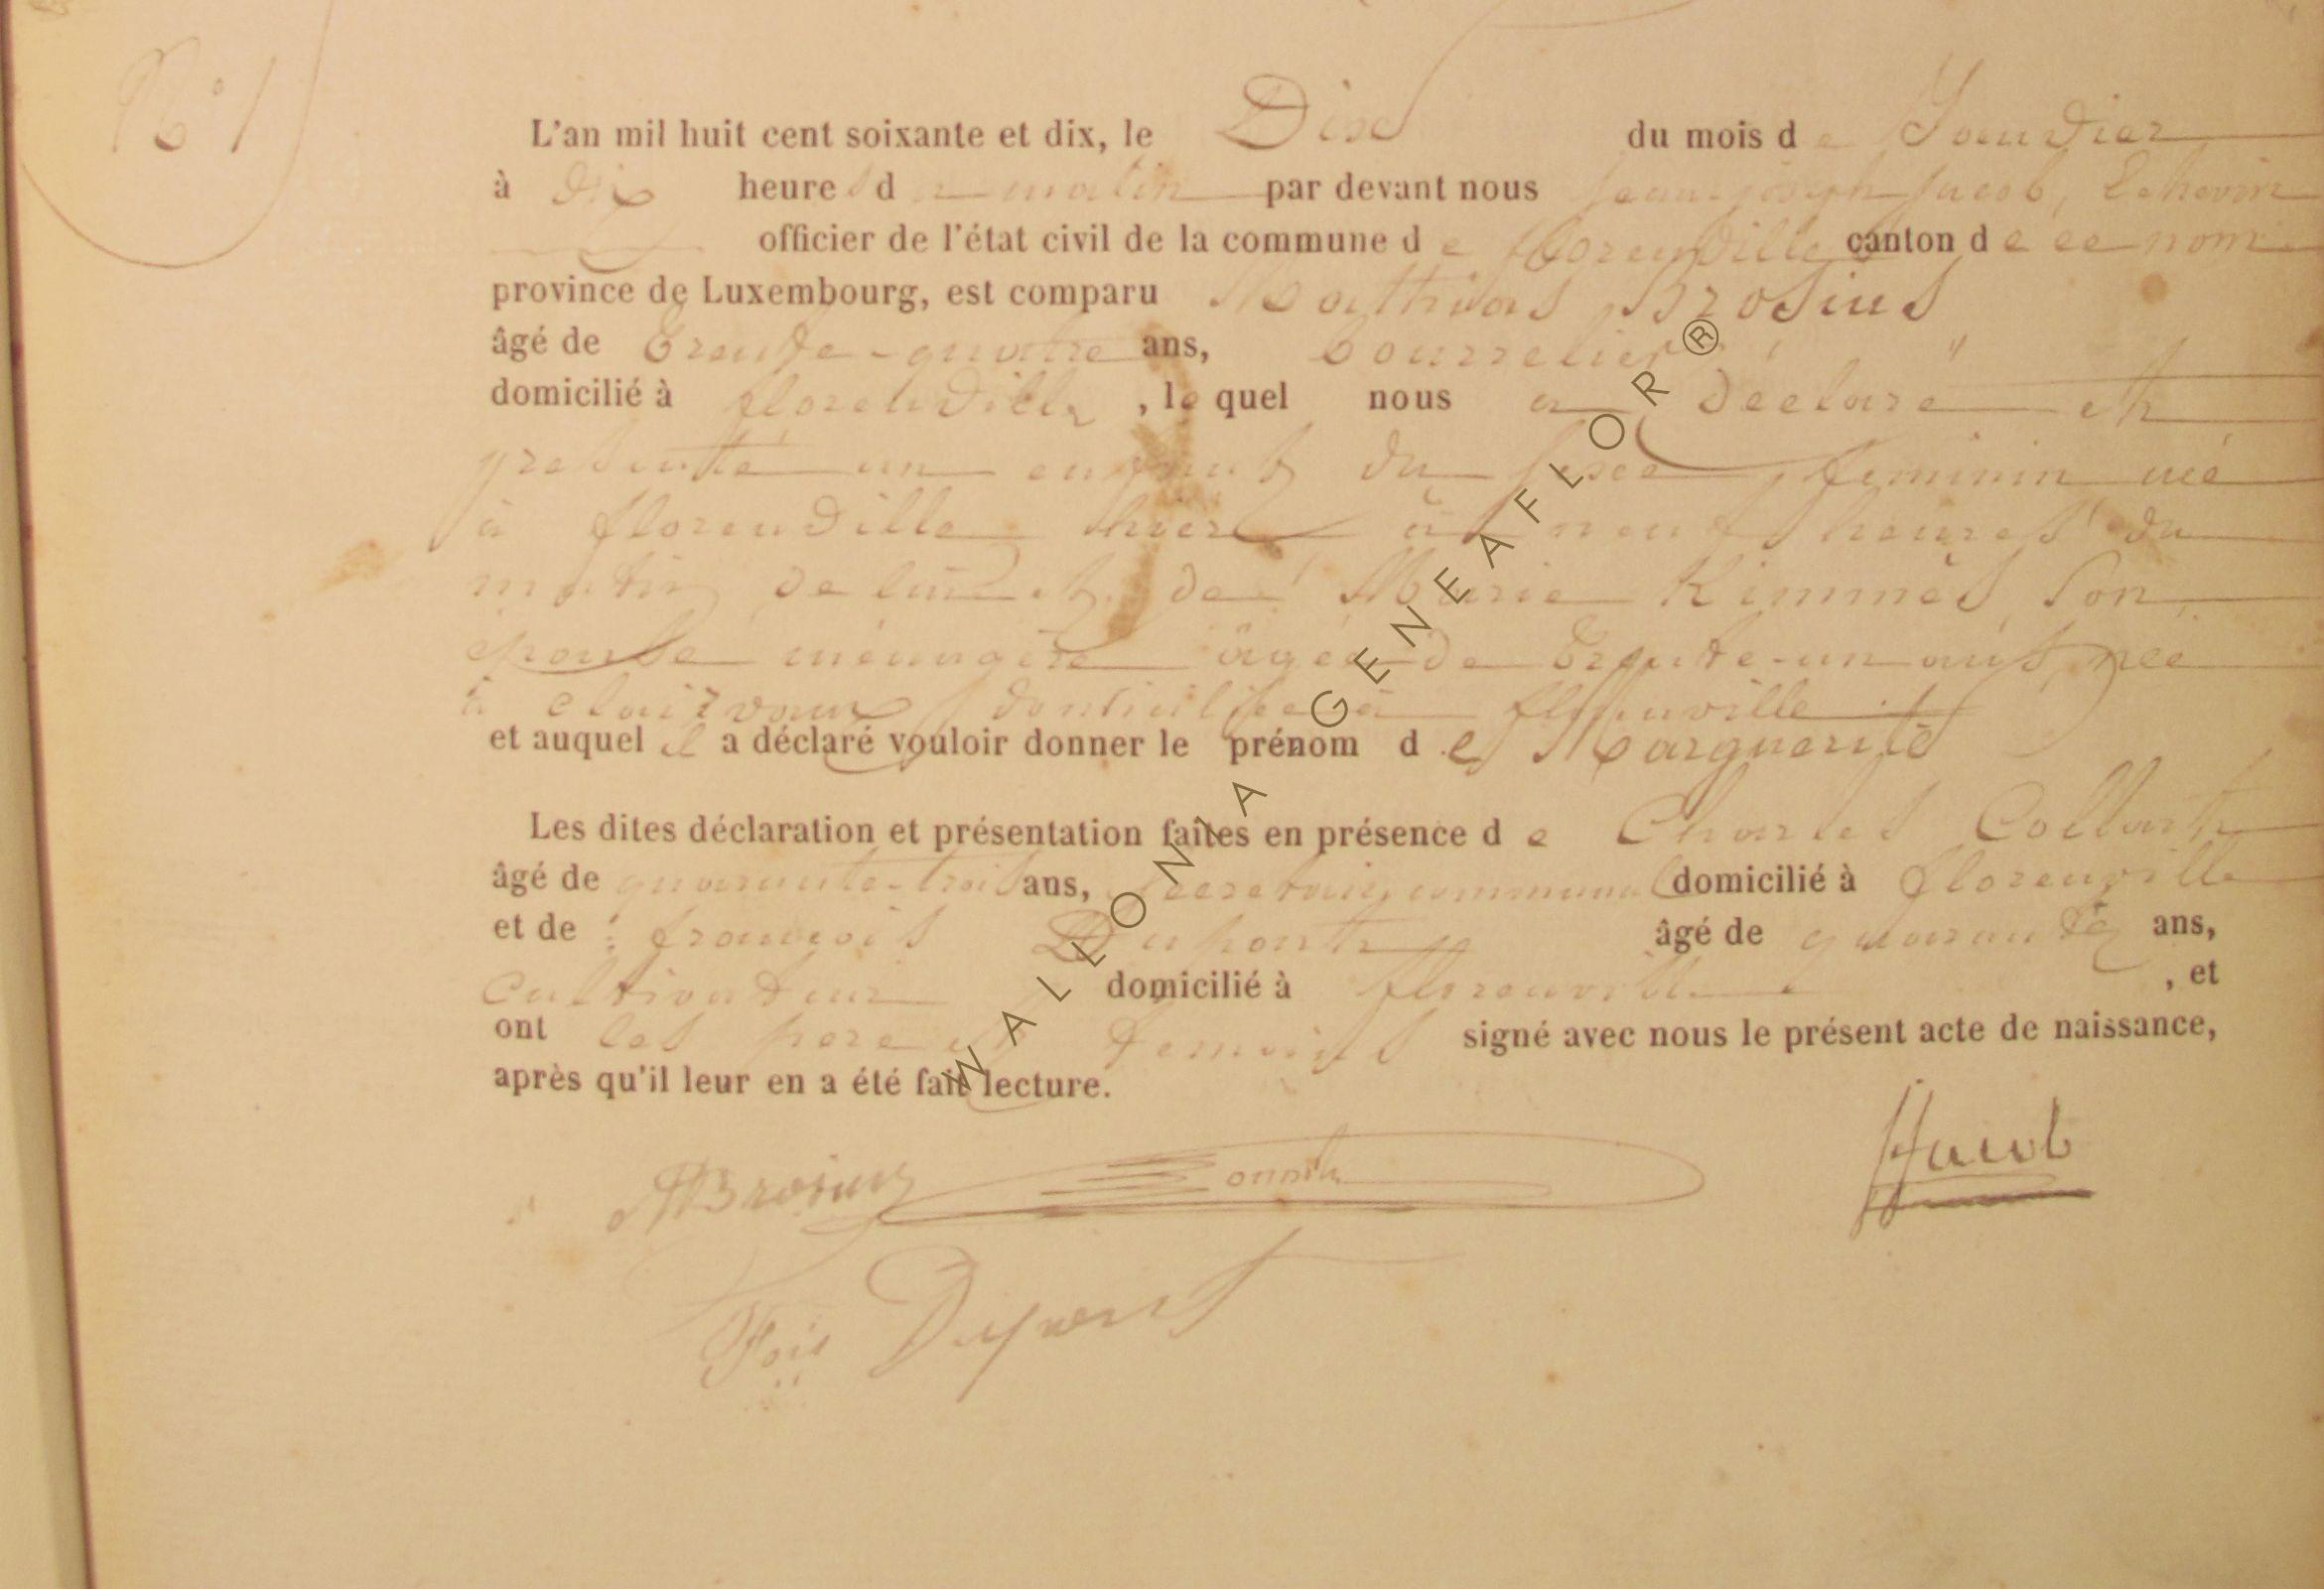 N° 1
L'an mil huit cent soixante et dix, le Dix du mois de Janvier
à dix heures du matin par devant nous Jean-joseph Jacob, Echevin
officier de l'état civil de la commune de florenville canton de ce nom
province de Luxembourg, est comparu Mathias Brosius
âgé de trente-quatre ans, bourrelier
domicilié à florenville, lequel nous a déclaré et
présenté un enfant du sexe feminin né
à florenville hier à neuf heures du
matin de lui et de Marie Kimmès, son
épouse ménagère âgée de trente-un ans, née
à clairvaux domiciliée à florenville
et auquel il a déclaré vouloir donner le prénom de Marguerite
Les dites déclaration et présentation faites en présence de Charles Collart
âgé de quarante-trois ans, secretaire communal domicilié à florenville
et de : françois Dupont âgé de quarante ans,
Cultivateur domicilié à florenville , et
ont les père et témoins signé avec nous le présent acte de naissance,
après qu'il leur en a été fait lecture.
MBrosius
JJacob
Fois Dupont
WALLONIA GENEAFLOR®